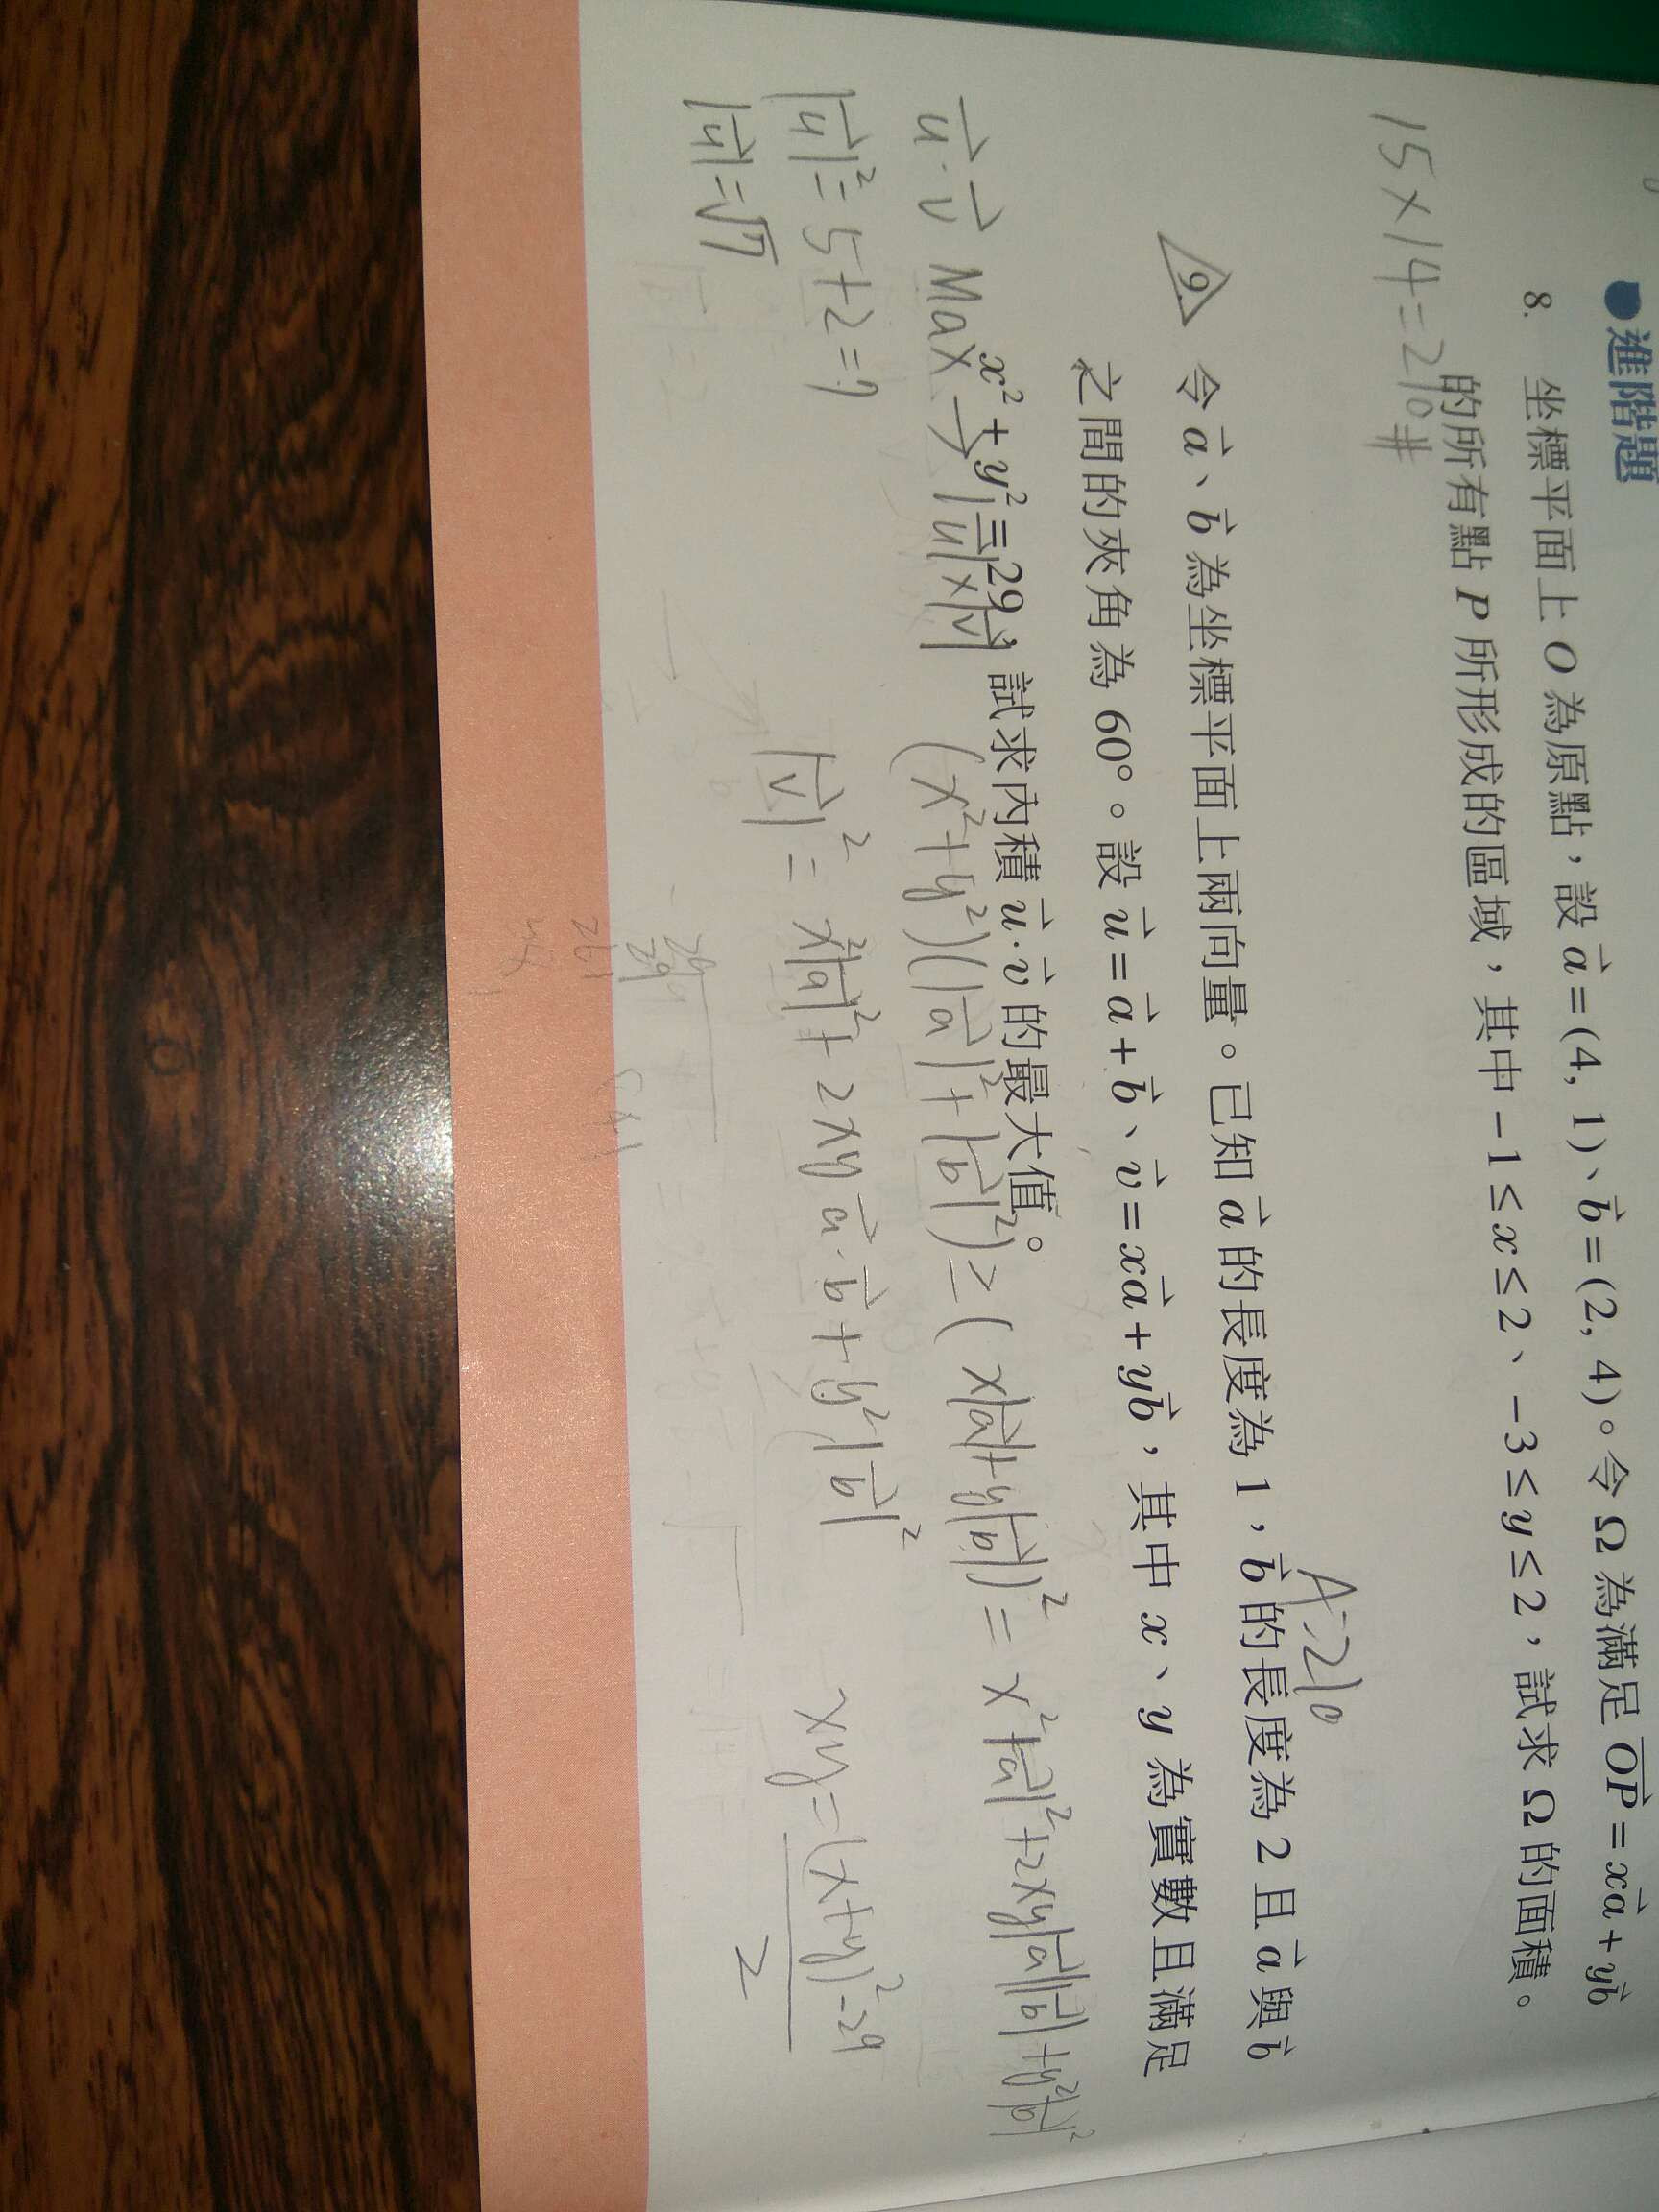 ●進階題
8. 坐標平面上 O 為原點，設 a⃗ = (4, 1)、b⃗ = (2, 4)。令 Ω 為滿足 OP⃗ = xa⃗ + yb⃗
的所有點 P 所形成的區域，其中 −1 ≤ x ≤ 2、−3 ≤ y ≤ 2，試求 Ω 的面積。
15×14=210#
A:210
9. 令 a⃗、b⃗ 為坐標平面上兩向量。已知 a⃗ 的長度為 1，b⃗ 的長度為 2 且 a⃗ 與 b⃗
之間的夾角為 60°。設 u⃗ = a⃗ + b⃗、v⃗ = xa⃗ + yb⃗，其中 x、y 為實數且滿足
x² + y² = 29，試求內積 u⃗·v⃗ 的最大值。
u⃗·v⃗ Max → |u⃗|×|v⃗|
(x²+y²)(|a⃗|²+|b⃗|²) ≥ (x|a⃗|+y|b⃗|)² = x²|a⃗|²+2xy|a⃗||b⃗|+y²|b⃗|²
|u⃗|²=5+2=7
|v⃗|²= x²|a⃗|²+2xy a⃗·b⃗+y²|b⃗|²
xy=(x+y)²-29
2
|u⃗|=√7